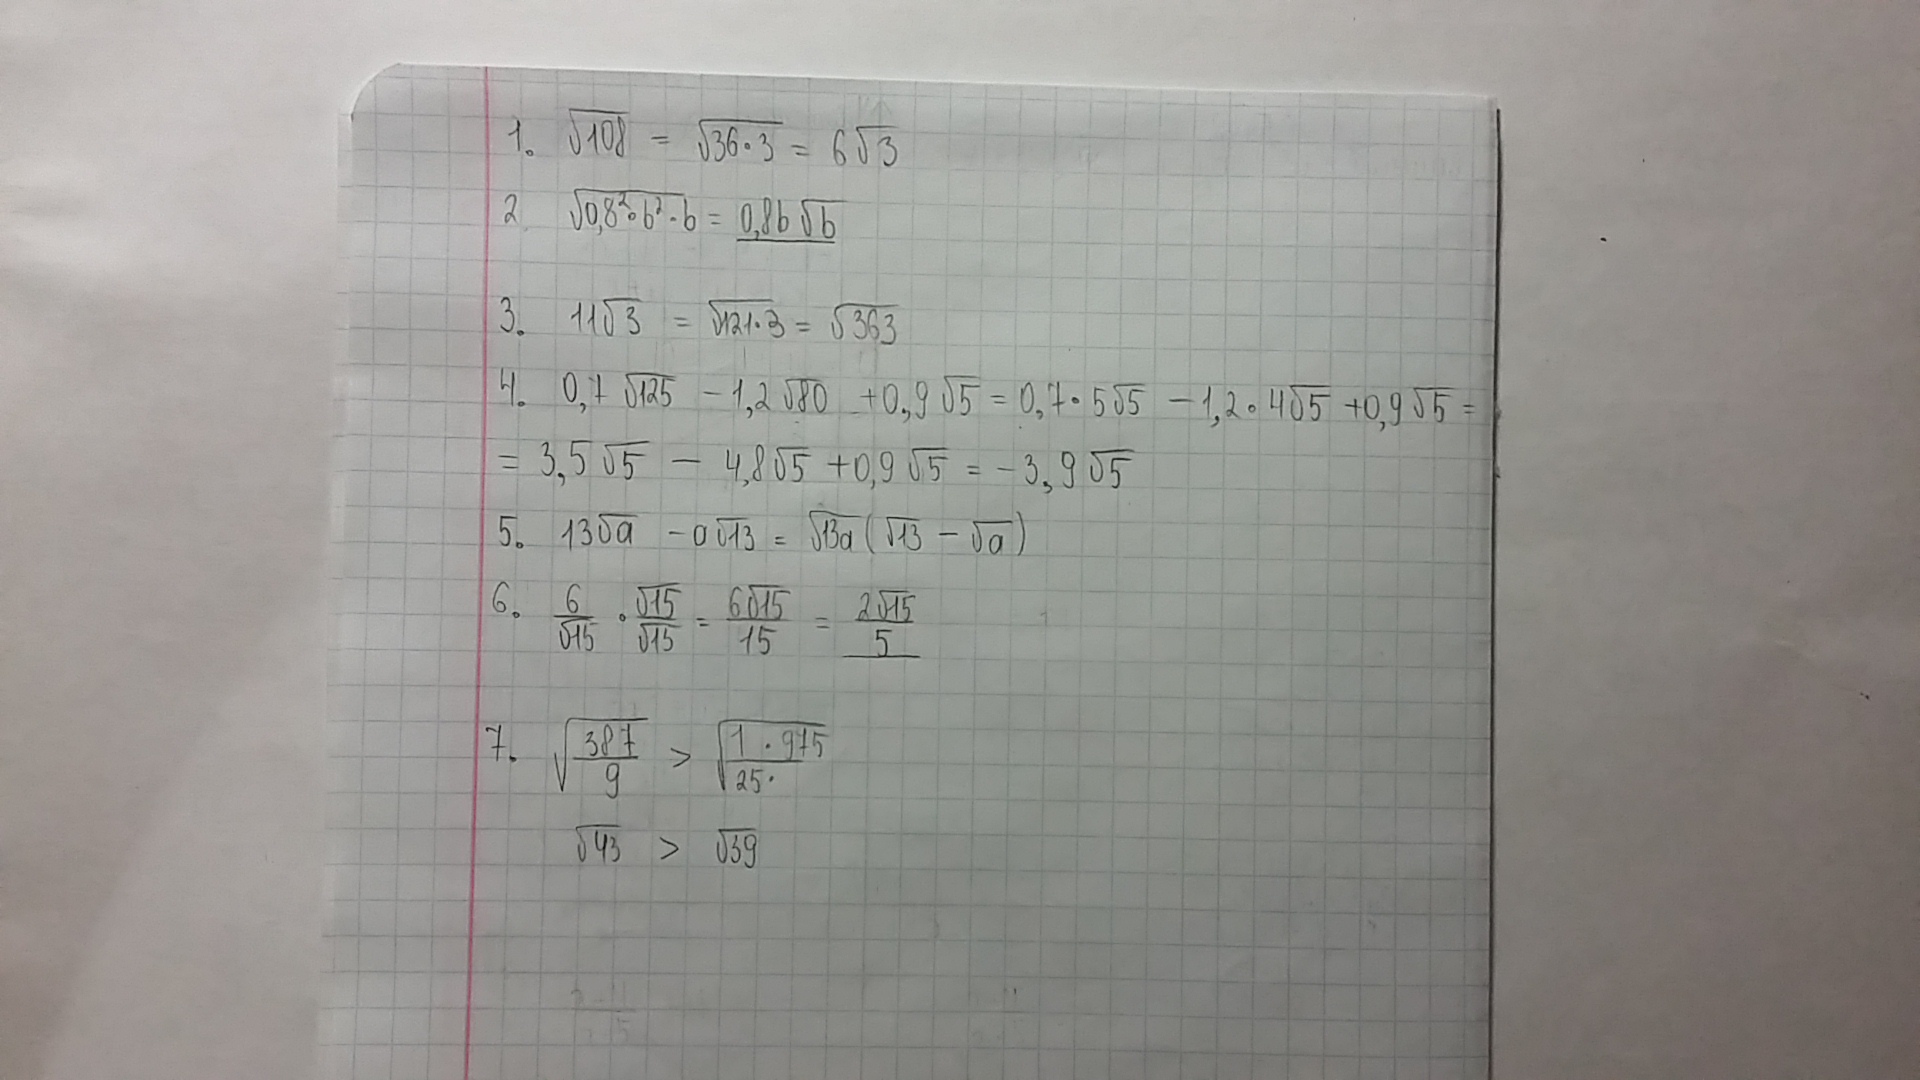 1. √108 = √(36·3) = 6√3
2 √(0,8²·b²·b) = 0,8b√b
3. 11√3 = √(121·3) = √363
4. 0,7√125 − 1,2√80 + 0,9√5 = 0,7·5√5 − 1,2·4√5 + 0,9√5 =
= 3,5√5 − 4,8√5 + 0,9√5 = −3,9√5
5. 13√a − a√13 = √13a(√13 − √a)
6. 6/√15 · √15/√15 = 6√15/15 = 2√15/5
7. √(387/9) > √(1·975/25·)
√43 > √39